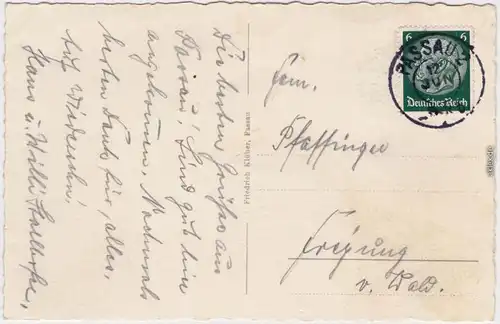 Die besten Grüße aus
Passau! Sind gut hier
angekommen. Nochmals
besten Dank für alles,
auf Wiedersehn!
Hans u. Willi
Friedrich Klöber, Passau
6 6
Deutsches Reich
PASSAU 2
12
JUN
Fam.
Pfaffinger
Freyung
v. Wald.